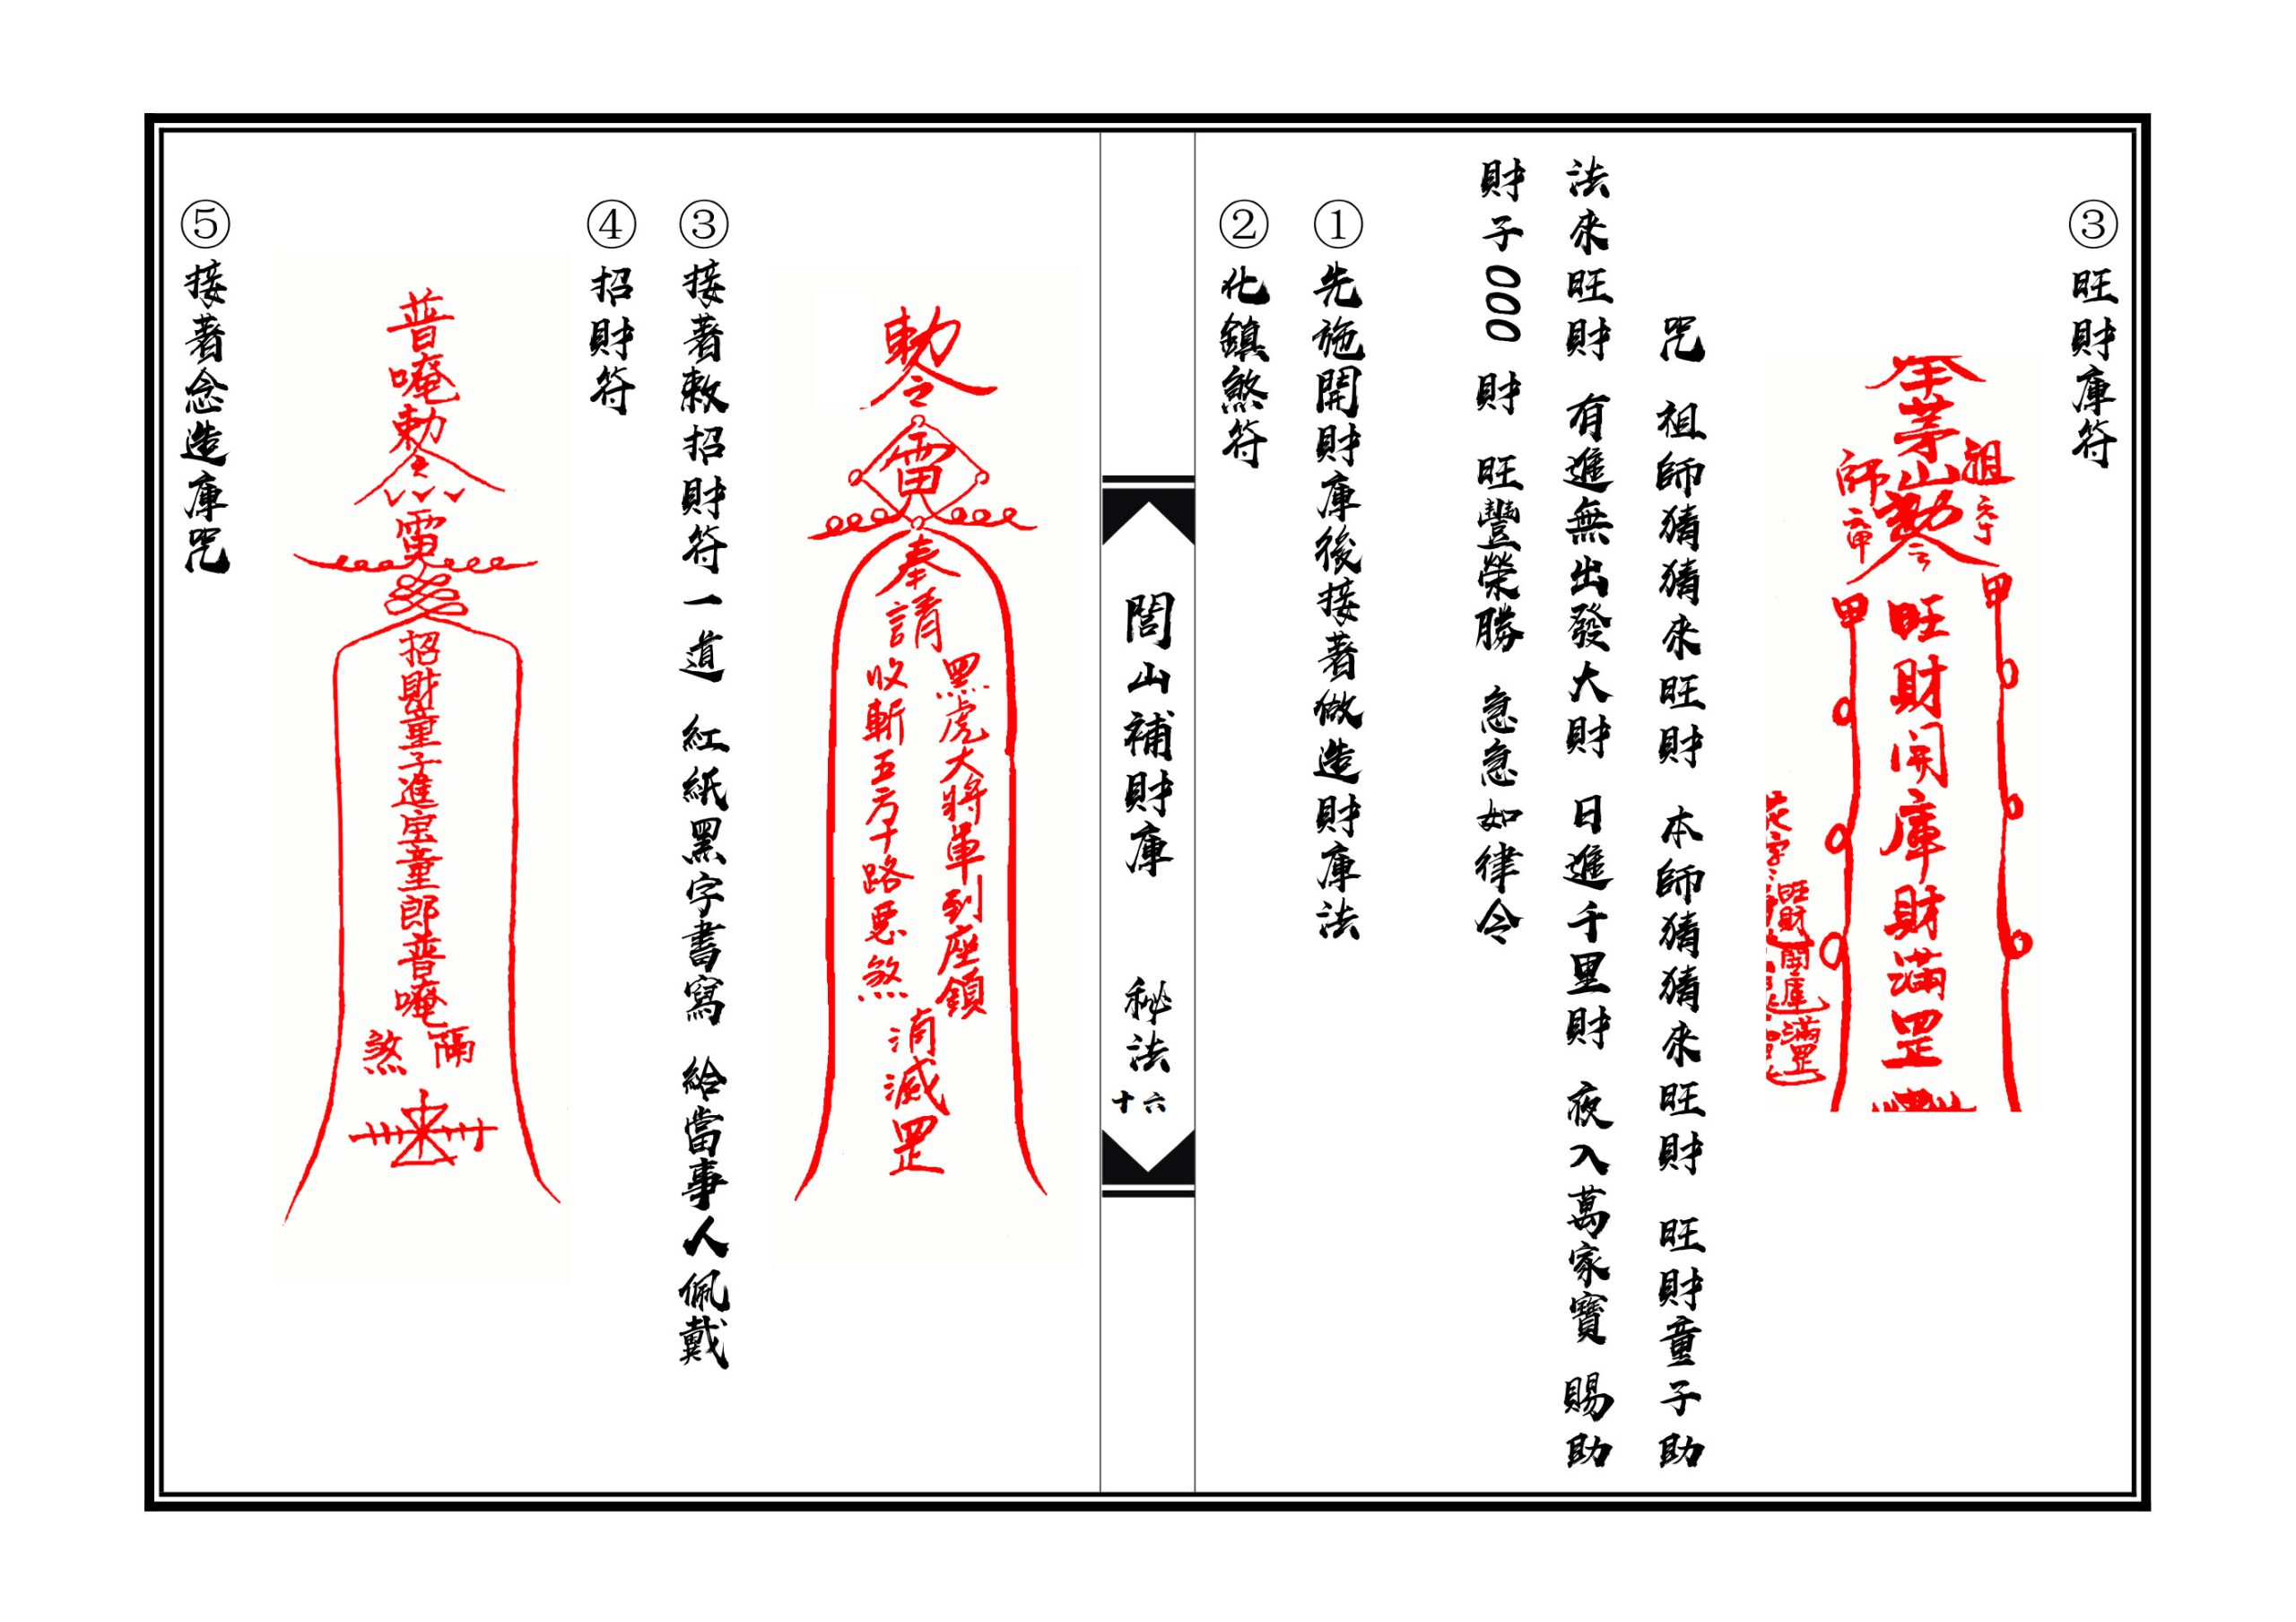 ③旺財庫符
奉茅山勅令
祖師
六丁
六甲
甲
甲
旺財開庫財滿罡
花字:
旺財開庫滿罡
咒 祖師猜猜來旺財 本師猜猜來旺財 旺財童子助
法來旺財 有進無出發大財 日進千里財 夜入萬家寶 賜助
財子000 財 旺豐榮勝 急急如律令
①先施開財庫後接著做造財庫法
②化鎮煞符
閭山補財庫 秘法
十六
勅令
雷
奉請
黑虎大將軍到座鎮
收斬五方十路惡煞
消滅罡
③接著敕招財符一道 紅紙黑字書寫 給當事人佩戴
④招財符
普唵勅令
雷
招財童子進宝童郎普唵
隔煞
⑤接著念造庫咒